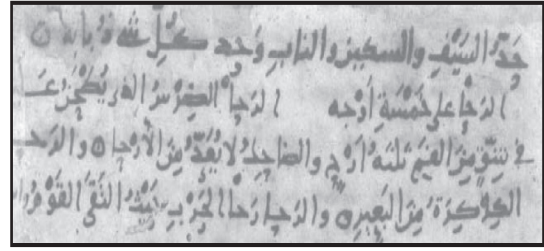 حَدُّ السَيْفِ والسكين والنابِ وَحد كُلِّ شىء
الرَحا على خَمْسَةِ أَوْجه الرَحا الضِرْسُ الذى يَطْحَنُ
فى شِقٍّ مِنَ الفَمِ ثلثه أَرْحٍ والضاحِكُ لا يُعَدُّ مِنَ الأَرْحا والرَحا
الكِرْكِرَةُ مِنَ البَعِيرِ والرَحا رَحا الحَرْبِ حَيْثُ التَقَى القَوْمُ